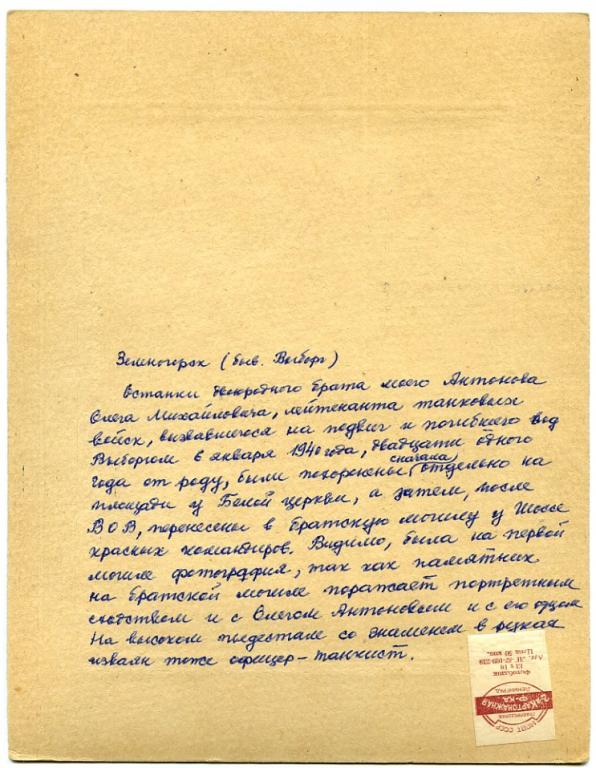 Зеленогорск (быв. Выборг)
Останки двоюродного брата моего Антонова
Олега Михайловича, лейтенанта танковых
войск, вызвавшегося на подвиг и погибшего под
Выборгом 6 января 1940 года, двадцати одного
года от роду, были похоронены сначала отдельно на
площади у Белой церкви, а затем, после
ВОВ, перенесены в братскую могилу у Шоссе
красных командиров. Видимо, была на первой
могиле фотография, так как памятник
на братской могиле поражает портретным
сходством и с Олегом Антоновым и с его отцом
На высоком пьедестале со знаменем в руках
изваян тоже офицер-танкист.
МПТ СССР
ЛЕНИНГРАД
КАРТОНАЖНАЯ
Ф-КА
Фотобланк
13 х 18
Цена 50 коп.